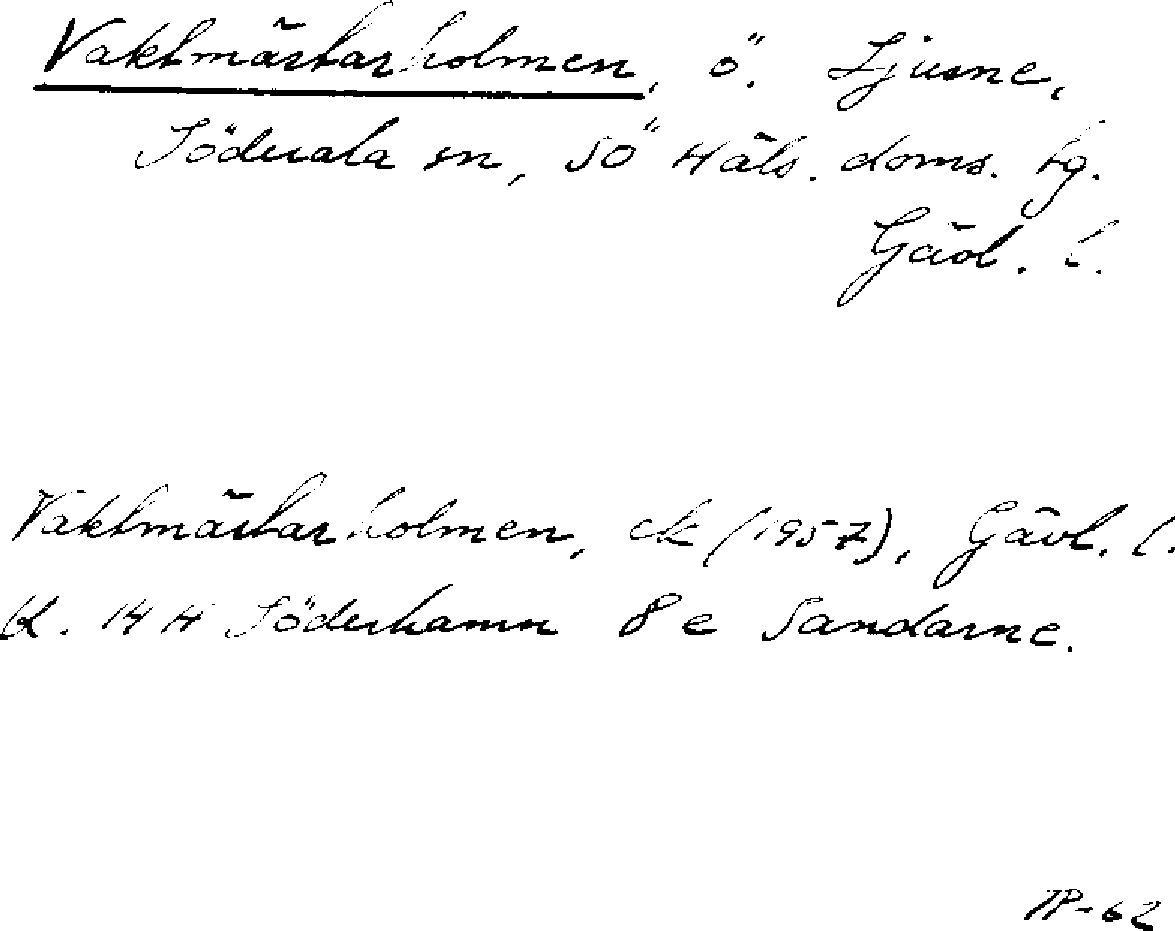 Vaktmästarholmen, ö. Ljusne,
Söderala sn, SÖ Häls. doms. tg.
Gävl. l.
Vaktmästarholmen, ek (1957), Gävl. l.
Bl. 14 H Söderhamn 8 e Sandarne.
TP-62